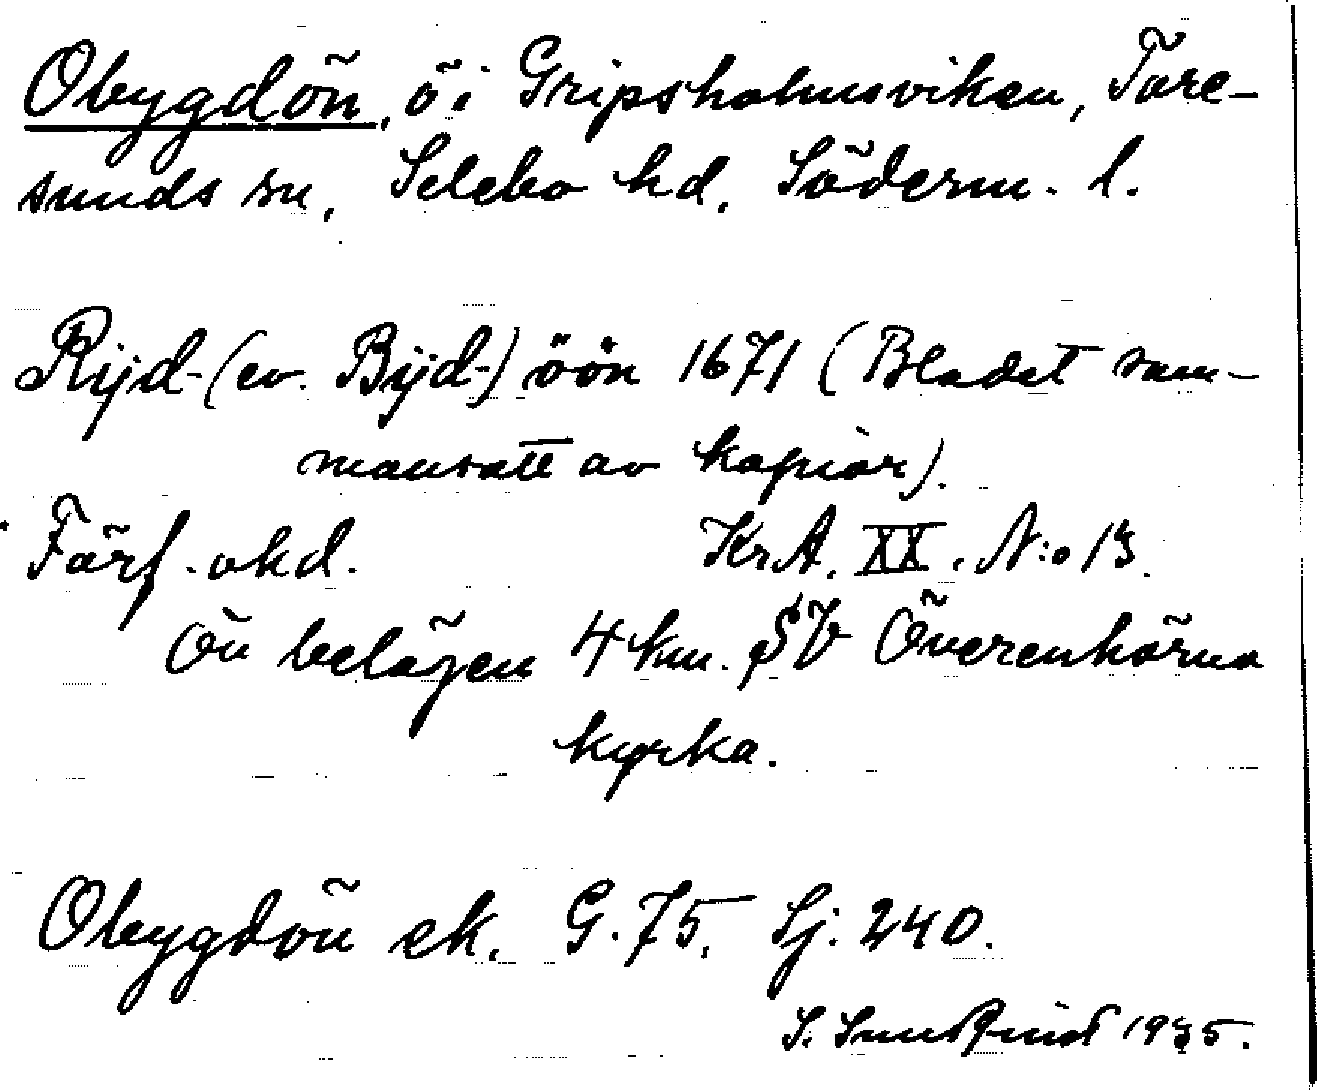 Obygdön, ö i Gripsholmsviken, Tore-
sunds sn, Selebo hd, Söderm. l.
Rijd- (ev. Bijd-) öön 1671 (Bladet sam-
mansatt av kopior).
Förf. okd. KrA. XX. N:o 13.
Ön belägen 4 km. SV Överenhörna
kyrka.
Obygdön ek. G. 75. Lj. 240.
S. Sundqvist 1935.